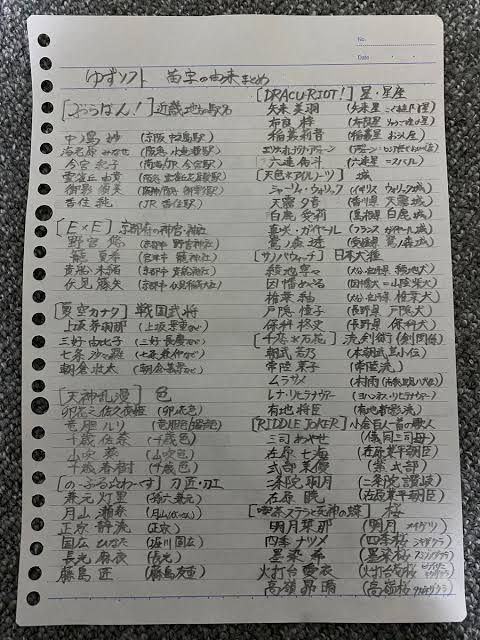 No.
Date
ゆずソフト 苗字の由来まとめ
[ぶらばん!] 近畿地方駅名
中ノ島 妙 (京阪 中之島駅)
今宮 紗子 (南海/JR 今宮駅)
雲雀丘 由貴 (阪急 雲雀丘花屋敷駅)
御影 (阪神/阪急 御影駅)
香住 純 (JR 香住駅)
[E×E] 京都府の神宮・神社
野宮 悠 (京都市 野宮神社)
籠 夏季 (宮津市 籠神社)
貴船 未緒 (京都市 貴船神社)
伏見 藤矢 (京都市 伏見稲荷大社)
[夏空カナタ] 戦国武将
上坂 茅羽耶 (上坂景重など)
三好 由比子 (三好長慶など)
七条 沙々羅 (七条兼仲など)
朝倉 壮太 (朝倉義景など)
[天神乱漫] 色
卯花之佐久夜姫 (卯の花色)
竜胆 ルリ (竜胆色/瑠璃色)
千歳 佐奈 (千歳色)
山吹 葵 (山吹色)
千歳 春樹 (千歳色)
[の・ぶるじょわーず] 刀匠・刀工
兼元 灯里 (孫六兼元)
月山 瀬奈 (月山)
正宗 静流 (正宗)
国広 ひなた (堀川国広)
長光 麻衣 (長光)
藤島 匠 (藤島友重)
[DRACU-RIOT!] 星・星座
矢来 美羽 (矢来星=
布良 梓 (布良星=りゅうこつ座の星)
稲叢 莉音 (稲叢星=おうし座)
エリナ・オレゴヴナ・アヴェーン
六連 佑斗 (六連星=スバル)
[天色*アイルノーツ] 城
シャーリィ・ウォリック (イギリス ウォリック城)
天霧 夕音 (香川県 天霧城)
白鹿 愛莉 (島根県 白鹿城)
真咲・ガイヤール (フランス ガイヤール城)
鷺ノ森 透 (愛媛県 鷺ノ森城)
[サノバウィッチ] 日本犬種
綾地 寧々 (大分・宮崎県 綾地犬)
因幡 めぐる (因幡犬=山陰柴犬)
椎葉 紬 (大分・宮崎県 椎葉犬)
戸隠 憧子 (長野県 戸隠犬)
保科 柊史 (長野県 保科犬)
[千恋*万花] 流剣術(剣関係)
朝武 芳乃 (本朝武芸小伝)
常陸 茉子 (常陸流)
ムラサメ (村雨
レナ・リヒテナウアー (ヨハンネス・リヒテナウアー)
有地 将臣 (有地新影流)
[RIDDLE JOKER] 小倉百人一首の歌人
三司 あやせ (儀同三司母)
在原 七海 (在原業平朝臣)
式部 茉優 (紫式部)
二条院 羽月 (二条院讃岐)
在原 暁 (在原業平朝臣)
[喫茶ステラと死神の蝶] 桜
明月 栞那 (明月 メイゲツ)
四季 ナツメ (四季桜 シキザクラ)
墨染 希 (墨染桜 スミゾメザクラ)
火打谷 愛衣 (火打谷菊桜 ヒウチダニキクザクラ)
高嶺 昂晴 (高嶺桜 タカネザクラ)